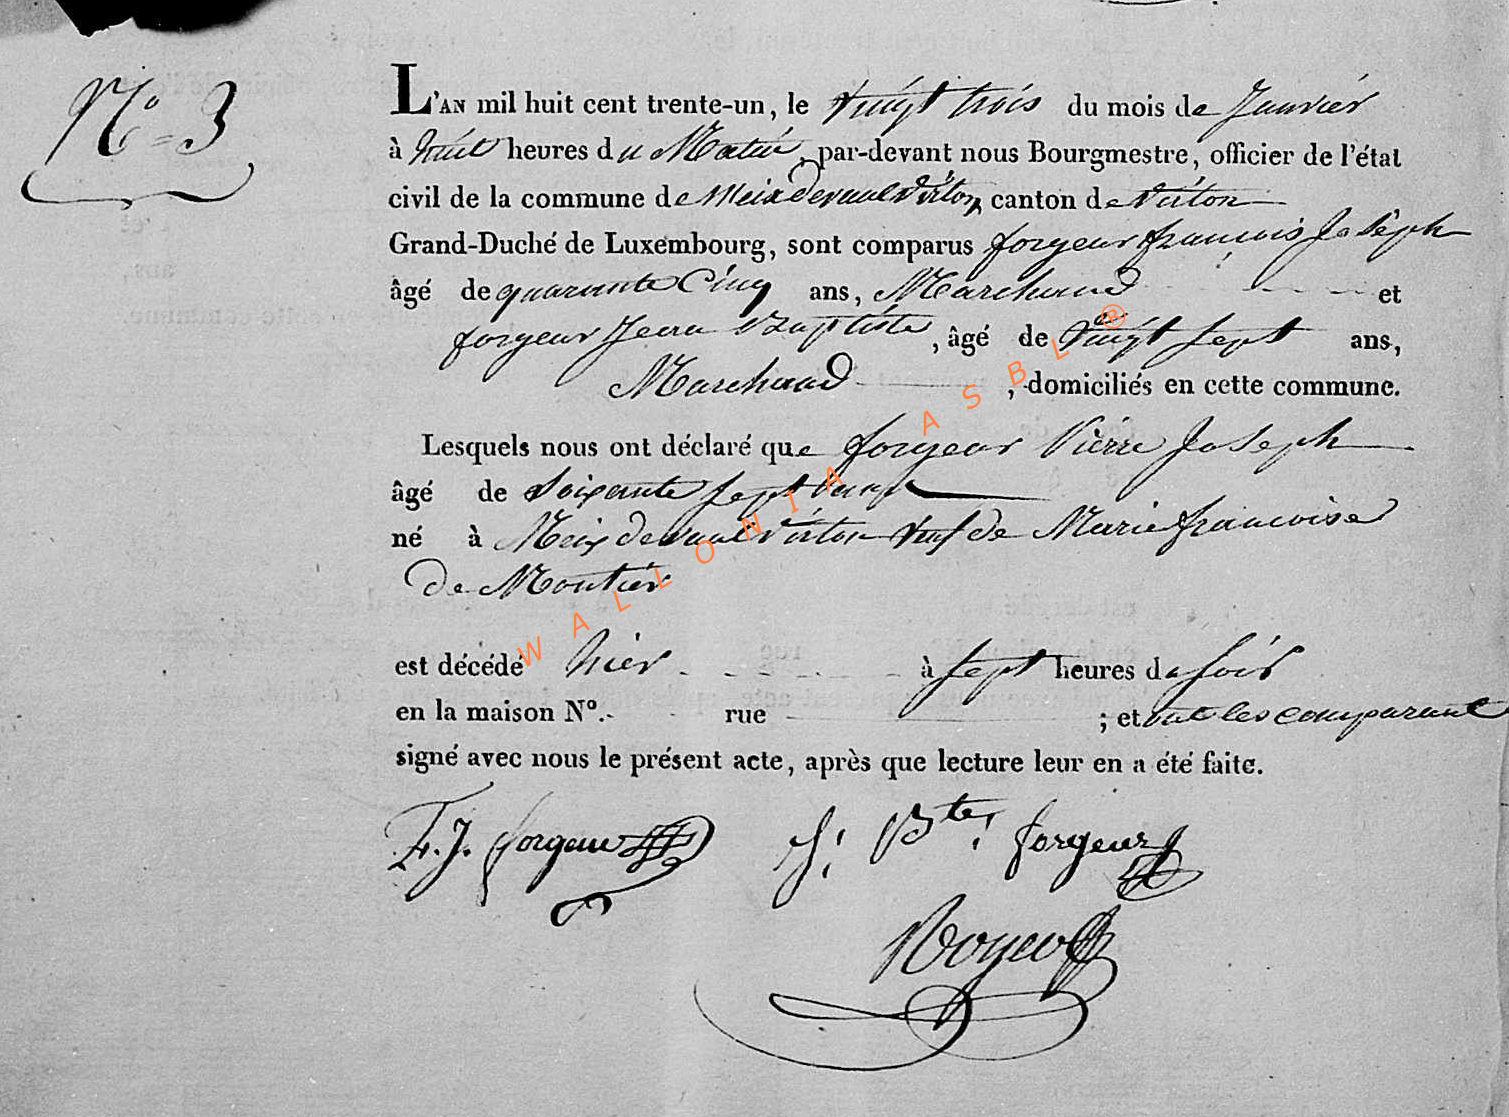 N° = 3
L'AN mil huit cent trente-un, le vingt trois du mois de Janvier
à huit heures du Matin, par-devant nous Bourgmestre, officier de l'état
civil de la commune de Meix devant Virton, canton de Virton
Grand-Duché de Luxembourg, sont comparus forgeur françois Joseph
âgé de quarante Cinq ans, Marchand et
forgeur Jean Baptiste, âgé de vingt sept ans,
Marchand, domiciliés en cette commune.
Lesquels nous ont déclaré que forgeur Pierre Joseph
âgé de Soixante sept ans
né à Meix devant Virton veuf de Marie françoise
de Moutier
est décédé hier à sept heures du soir
en la maison N°. rue ; et ont les comparant
signé avec nous le présent acte, après que lecture leur en a été faite.
F. J. forgeur J. Bte. forgeur
WALLONIA ASBL ®